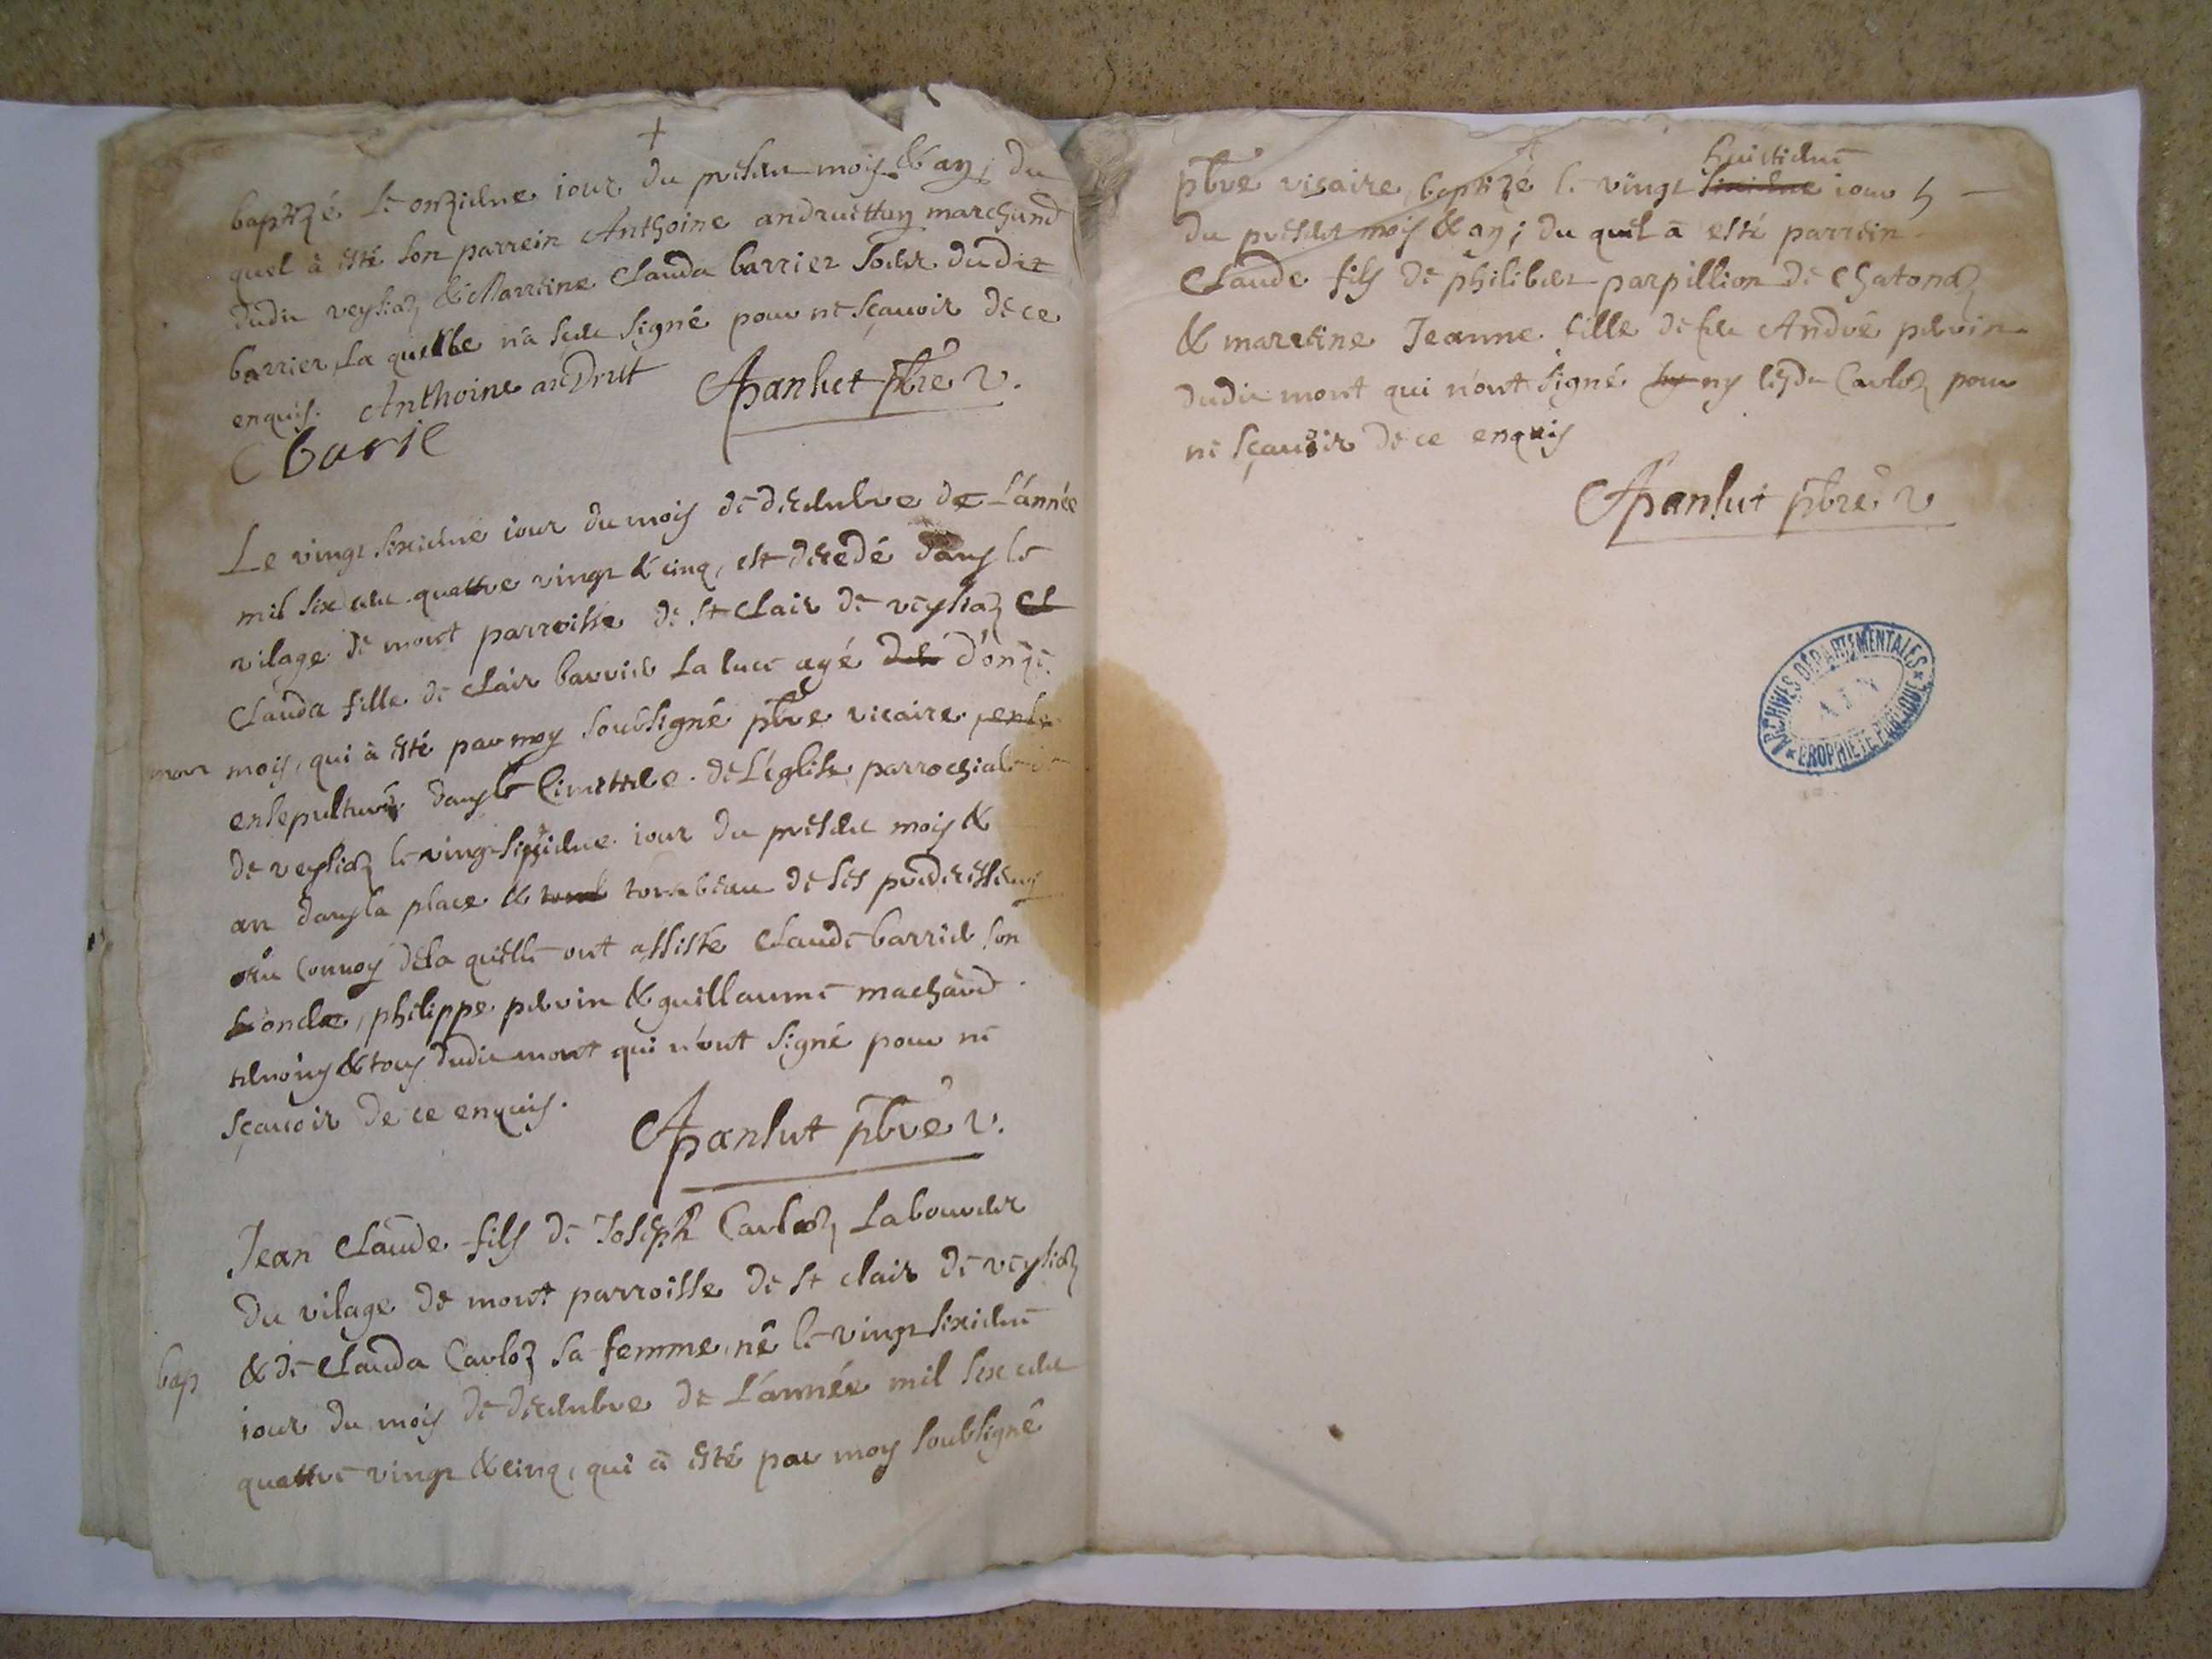 +
baptizé le onziesme iour du present mois & an; du
quel à esté son parrein Anthoine andruettan marchand
dudit veyziaz & Marreine Clauda barrier soeur dudit
barrier, la quelle n'a sceu signé pour ne sçauoir de ce
enquis. Anthoine andruet Apansut pbre v.
C barie
Le vingt sixiesme iour du mois de decembre de L'année
mil six cent quattre vingt & cinq, est decedé dans le
vilage de mont parroisse de st Clair de veyziaz
Clauda fille de clair barrier La luce agé d'onze
mour mois, qui à esté par moy soubsigné pbre vicaire
ensepulturé dans le Cimettere de L'église parrochiale
de veyziaz le vingt iour du present mois &
an dans la place & tombeau de ses predecesseurs
au Conuoy de la quelle ont assisté Claude barrier son
oncle, philippe peruin & guillaume machard
temoins & tous dudit mont qui n'ont signé pour ne
sçauoir de ce enquis.
Apansut pbre v.
Jean Claude fils de Joseph Carloz Laboureur
du vilage de mont parroisse de st clair de veyziaz
bap & de Clauda Carloz sa femme, né le vingt sixiesme
iour du mois de decembre de L'année mil six cent
quattre vingt & cinq, qui à esté par moy soubsigné
huictiesme
pbre vicaire, baptizé le vingt sixiesme iour
du present mois & an; du quel a esté parrein
Claude fils de philibert parpillion de Chatonaz
& marreine Jeanne fille de feu André peruin
dudit mont qui n'ont signé ny lesdit Carloz pour
ne sçauoir de ce enquis
Apansut pbre v
ARCHIVES DÉPARTEMENTALES
AIN
PROPRIÉTÉ PUBLIQUE